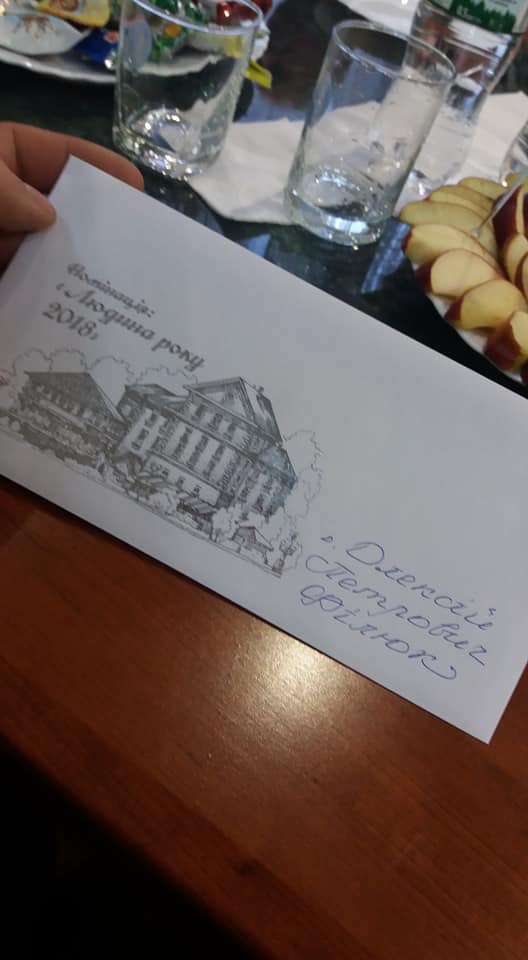 Номінація:
"Людина року
2018"
о. Олексій
Петрович
Філюк